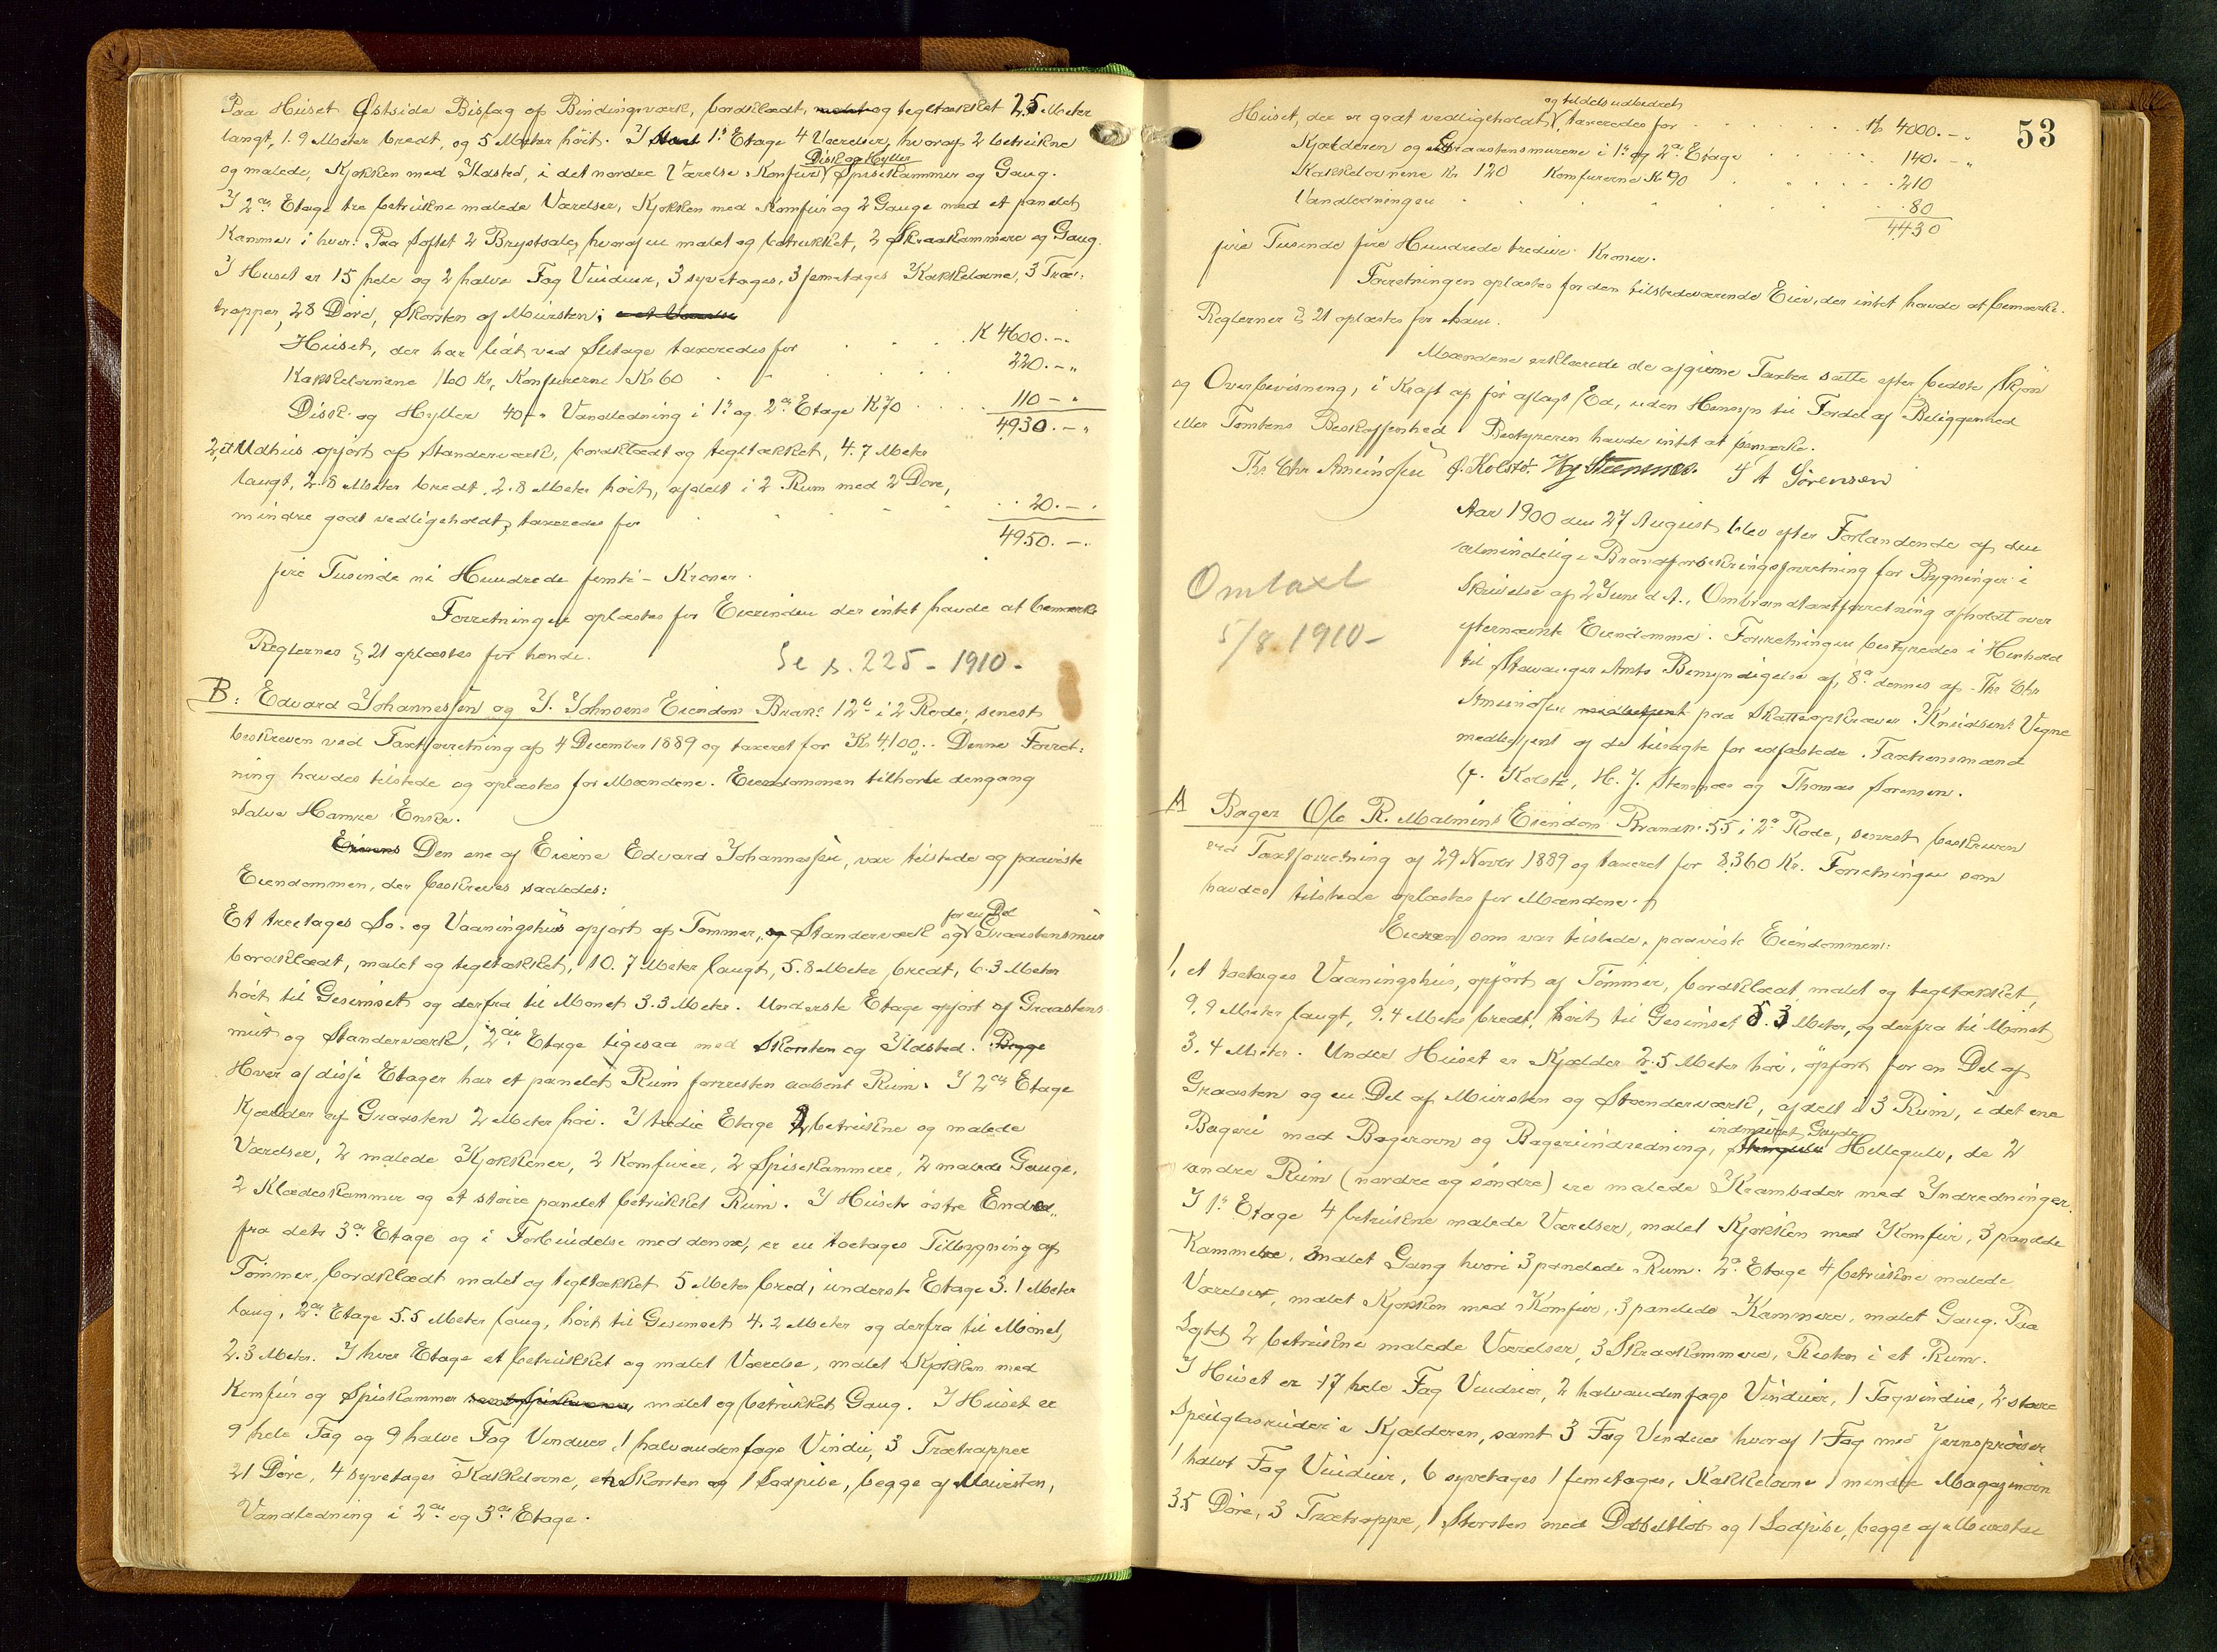 Paa Huset Østside Bislag af Bindingsværk, bordklædt, malet og tegltækket 2.5 Meter
langt, 1.9 Meter bredt, og 5 Meter höit. I 1ste Etage 4 Værelser, hvoraf 2 betrukne
Disk og Hyller
og malede, Kjøkken med Ildsted, i det nordre Værelse Komfur, Spisekammer og Gang.
I 2den Etage tre betrukne malede Værelser, Kjøkken med Komfur og 2 Gange med et panelet
Kammer i hver. Paa Loftet 2 Brystsale, hvoraf en malet og betrukket, 2 Skraakammere og Gang.
I Huset er 15 hele og 2 halve Fag Vinduer, 3 syvetages, 3 femetages Kakkelovne, 3 Træ-
trapper, 28 Döre, Skorsten af Mursten; e et Værelse
Huset, der har lidt ved Slitage taxeredes for K 4600.-
Kakkelovnene 160 Kr, Komfurerne Kr 60 220.- "
Disk og Hyller 40 -" Vandledning i 1ste og 2den Etage K 70 110 - "
4930.- "
2, et Udhus opført af Standerværk, bordklædt og tegltækket, 4.7 Meter
langt, 2.8 Meter bredt, 2.8 Meter höit, afdelt i 2 Rum med 2 Döre,
mindre godt vedligeholdt, taxeredes for 20.-
4950.-
fire Tusinde ni Hundrede femti - Kroner.
Forretningen oplæstes for Eierinden der intet havde at bemærke
Reglernes § 21 oplæstes for hende.
Se s. 225 - 1910 -
B: Edvard Johannesen og J. Johnsens Eiendom Brandno 12a i 2 Rode, senest
beskreven ved Taxtforretning af 4 December 1889 og taxeret for Kr 4,100.. Denne Forret-
ning havdes tilstede og oplæstes for Mændene. Eiendommen tilhørte dengang
Salve Hamres Enke.
Eierens Den ene af Eierne Edvard Johannessen, var tilstede og paaviste
Eiendommen, der beskreves saaledes:
for en Del
Et treetages Sö- og Vaaningshus opført af Tømmer, og Standerværk og Graastensmur
bordklædt, malet og tegltækket, 10.7 Meter langt, 5.8 Meter bredt, 6.3 Meter
höit til Gesimset og derfra til Mønet 3.3 Meter. Underste Etage opført af Graastens-
mur og Standerværk, 2den Etage ligesaa med Skorsten og Ildsted. Begge
Hver af disse Etager har et panelet Rum forresten aabent Rum. I 2den Etage
Kjælder af Graasten 2 Meter höi. I tredie Etage 2 betrukne og malede
Værelser, 2 malede Kjøkkener, 2 Komfurer, 2 Spisekammere, 2 malede Gange,
2 Klædeskammer og et større panelet betrukket Rum. I Husets østre Ende..
fra dets 3die Etage og i Forbindelse med denne, er en toetages Tilbygning af
Tømmer, bordklædt malet og tegltækket 5 Meter bred, underste Etage 3.1 Meter
lang, 2den Etage 5.5 Meter lang, höit til Gesimset 4.2 Meter og derfra til Mønet,
2.3 Meter. I hver Etage et betrukket og malet Værelse, malet Kjøkken med
Komfur og Spiskammer, malet og betrukket Gang. I Huset er
9 hele Fag og 9 halve Fag Vinduer, 1 halvandenfags Vindu, 3 Trætrapper
21 Döre, 4 syvetages Kakkelovne, en Skorsten og 1 Sodpibe, begge af Mursten,
Vandledning i 2den og 3die Etage.
53
og tildels udbedret
Huset, der er godt vedligeholdt, taxeredes for Kr 4000.-.
Kjælderen og Graastensmurene i 1ste og 2den Etage 140.- "
Kakkelovnene Kr 120 Komfurerne Kr 90 210
Vandledningen 80
4430
fire Tusinde fire Hundrede tredive Kroner.
Forretningen oplæstes for den tilstedeværende Eier, der intet havde at bemærke.
Reglernes § 21 oplæstes for ham.
Mændene erklærede de afgivne Taxter satte efter bedste Skjøn
og Overbevisning, i Kraft af før aflagt Ed, uden Hensyn til Fordel af Beliggenhed
eller Tomtens Beskaffenhed. Bestyreren havde intet at bemærke.
Ths Chr Amundsen G. Kolstø. Hj Stensnæs. T A Sörensen
Aar 1900 den 27 August blev efter Forlangende af den
almindelige Brandforsikringsforretning for Bygninger i
Skrivelse af 2 Juni d. A., Ombrandtaxtforretning afholdt over
efternævnte Eiendomme. Forretningen bestyredes i Henhold
til Stavanger Amts Bemyndigelse af, 8de dennes af Ths Chr
Amundsen paa Skatteopkræver Knudsens Vegne
medbetjent af de tilsagte før edfæstede Taxtionsmænd
G. Kolstø, H. J. Stensnæs og Thomas Sørensen.
Omtaxt
5/8 1910 -
A Bager Ole R. Malmins Eiendom Brandno 55 i 2den Rode, senest beskreven
ved Taxtforretning af 29 Novbr 1889 og taxeret for 8,360 Kr. Forretningen som
havdes tilstede oplæstes for Mændene.
Eieren som var tilstede, paaviste Eiendommen:
1, et toetages Vaaningshus, opført af Tømmer, bordklædt, malet og tegltækket,
9.9 Meter langt, 9.4 Meter bredt, höit til Gesimset 5.3 Meter, og derfra til Mønet
3.4 Meter. Under Huset er Kjælder 2.5 Meter höi, opført for en Del af
Graasten og en Del af Mursten og Standerværk, afdelt i 3 Rum, i det ene
indmuret Gryde
Bageri med Bagerovn og Bageriindredning, Hellegulv, de 2
andre Rum (nordre og søndre) ere malede Kramboder med Indredninger.
I 1ste Etage 4 betrukne malede Værelser, malet Kjøkken med Komfur, 3 panelede
Kammere, malet Gang hvori 3 panelede Rum. 2den Etage 4 betrukne malede
Værelser, malet Kjøkken med Komfur, 3 panelede Kammere, malet Gang. Paa
Loftet 2 betrukne malede Værelser, 3 Skraakammere, Resten i et Rum.
I Huset er 17 hele Fag Vinduer, 2 halvandenfags Vinduer, 1 Tagvindue, 2 store
Speilglasruder i Kjælderen, samt 3 Fag Vinduer hvoraf 1 Fag med Jernsprosser
1 halvt Fag Vinduer, 6 syvetages 1 femetages, Kakkelovne 1 mindre Magazinovn
35 Döre, 3 Trætrappe, 1 Skorsten med Dobbeltlöb og 1 Sodpibe, begge af Mursten